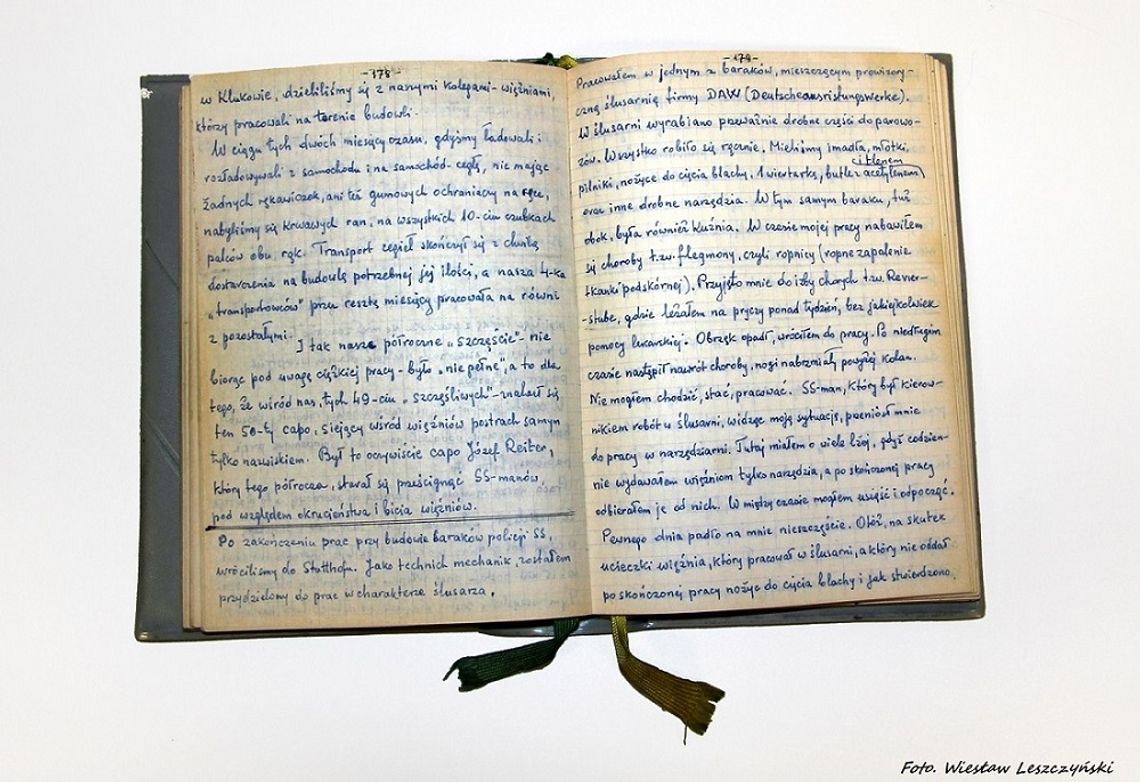 -178-
w Klukowie, dzieliliśmy się z naszymi kolegami-więźniami,
którzy pracowali na terenie budowli.
W ciągu tych dwóch miesięcy czasu, gdyśmy ładowali i
rozładowywali z samochodu i na samochód - cegłę, nie mając
żadnych rękawiczek, ani też gumowych ochraniaczy na ręce,
nabyliśmy się krwawych ran, na wszystkich 10-ciu czubkach
palców obu rąk. Transport cegieł skończył się z chwilą
dostarczenia na budowlę potrzebnej jej ilości, a nasza 4-ka
„transportowców" przez resztę miesięcy pracowała na równi
z pozostałymi.
I tak nasze półroczne „szczęście" - nie
biorąc pod uwagę ciężkiej pracy - było „nie pełne", a to dla
tego, że wśród nas, tych 49-ciu „szczęśliwych" - znalazł się
ten 50-ty capo, siejący wśród więźniów postrach samym
tylko nazwiskiem. Był to oczywiście capo Józef Reiter,
który tego półrocza, starał się prześcignąć SS-manów,
pod względem okrucieństwa i bicia więźniów.
Po zakończeniu prac przy budowie baraków policji SS,
wróciliśmy do Stutthofu. Jako technich mechanik, zostałem
przydzielony do prac w charakterze ślusarza.
-179-
Pracowałem w jednym z baraków, mieszczącym prowizory-
czną ślusarnię firmy DAW (Deutscheausristungswerke).
W ślusarni wyrabiano przeważnie drobne części do parowo-
zów. Wszystko robiło się ręcznie. Mieliśmy imadła, młotki,
i tlenem
pilniki, nożyce do cięcia blachy, 1 wiertarkę, butle z acetylenem
oraz inne drobne narzędzia. W tym samym baraku, tuż
obok, była również kuźnia. W czasie mojej pracy nabawiłem
się choroby t.zw. flegmony, czyli ropnicy (ropne zapalenie
tkanki podskórnej). Przyjęto mnie do izby chorych t.zw. Revier-
-stube, gdzie leżałem na pryczy ponad tydzień, bez jakiejkolwiek
pomocy lekarskiej. Obrzęk opadł, wróciłem do pracy. Po niedługim
czasie nastąpił nawrót choroby, nogi nabrzmiały powyżej kolan.
Nie mogłem chodzić, stać, pracować. SS-man, który był kierow-
nikiem robót w ślusarni, widząc moją sytuację, przeniósł mnie
do pracy w narzędziarni. Tutaj miałem o wiele lżej, gdyż codzien-
nie wydawałem więźniom tylko narzędzia, a po skończonej pracy
odbierałem je od nich. W między czasie mogłem usiąść i odpocząć.
Pewnego dnia padło na mnie nieszczęście. Otóż, na skutek
ucieczki więźnia, który pracował w ślusarni, a który nie oddał
po skończonej pracy nożyc do cięcia blachy i jak stwierdzono,
Foto. Wiesław Leszczyński